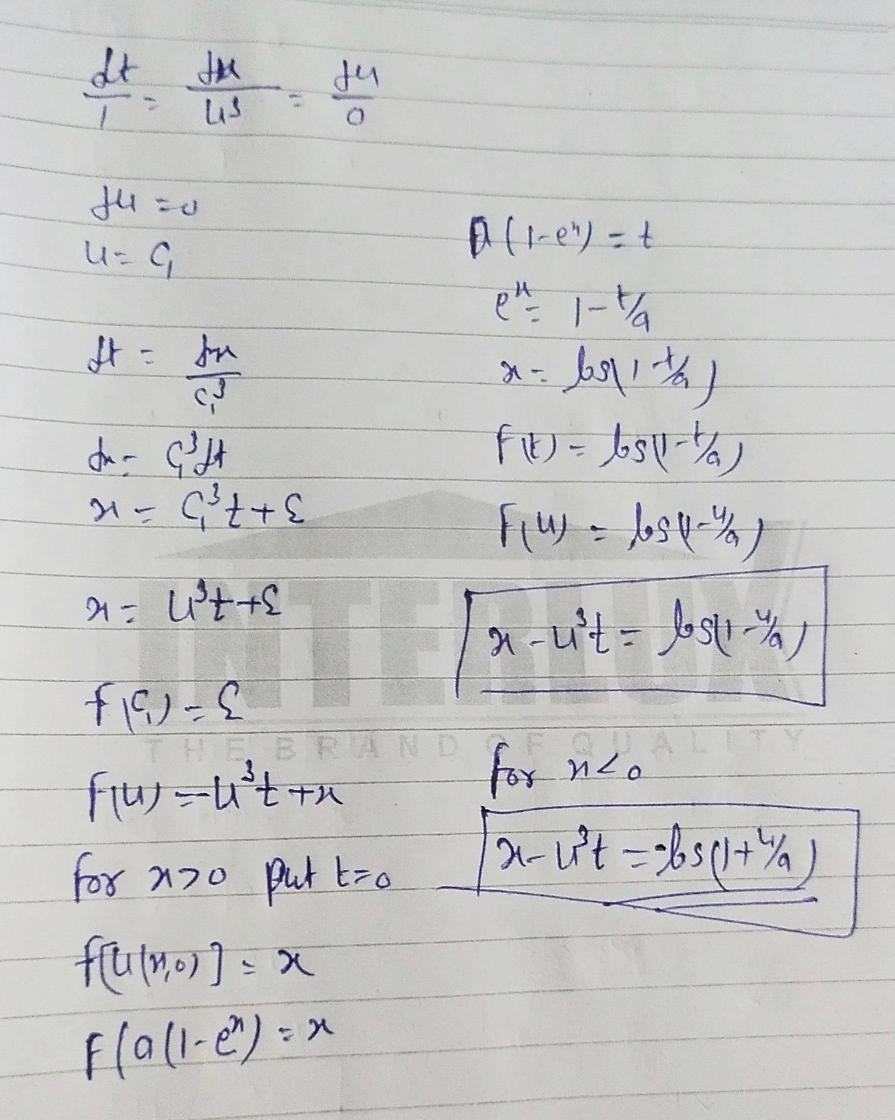 dt/1 = dx/u³ = du/0
du = 0
u = C₁
dt = dx/C₁³
dx = C₁³dt
x = C₁³t + ξ
x = u³t + ξ
f(C₁) = ξ
f(u) = -u³t + x
for x>0 put t=0
f[u(x,0)] = x
F(a(1-eˣ) = x
a(1-eˣ) = t
eˣ = 1-t/a
x = log(1-t/a)
f(t) = log(1-t/a)
f(u) = log(1-u/a)
x-u³t = log(1-u/a)
for x<0
x-u³t = -log(1+u/a)
INTERLUX
THE BRAND OF QUALITY